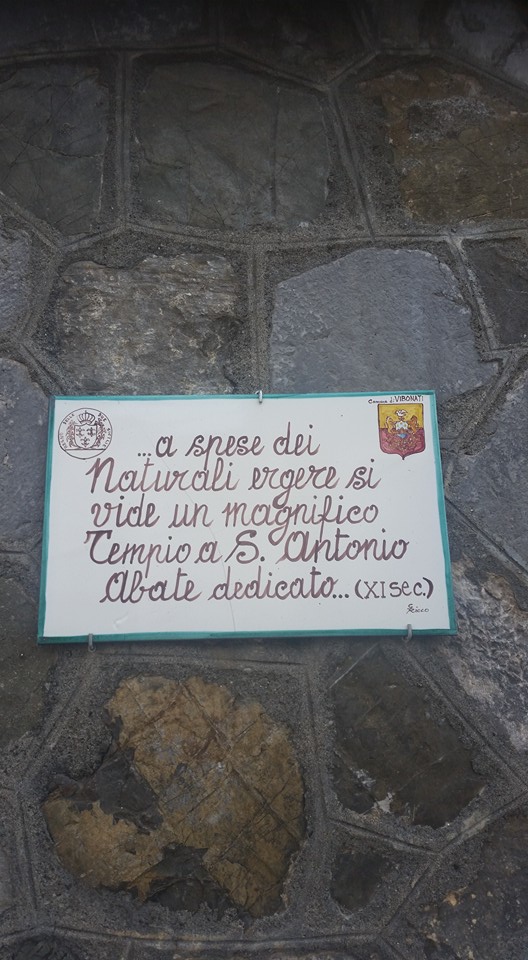 Comune di VIBONATI
...a spese dei
Naturali ergere si
vide un magnifico
Tempio a S. Antonio
Abate dedicato... (XI sec.)